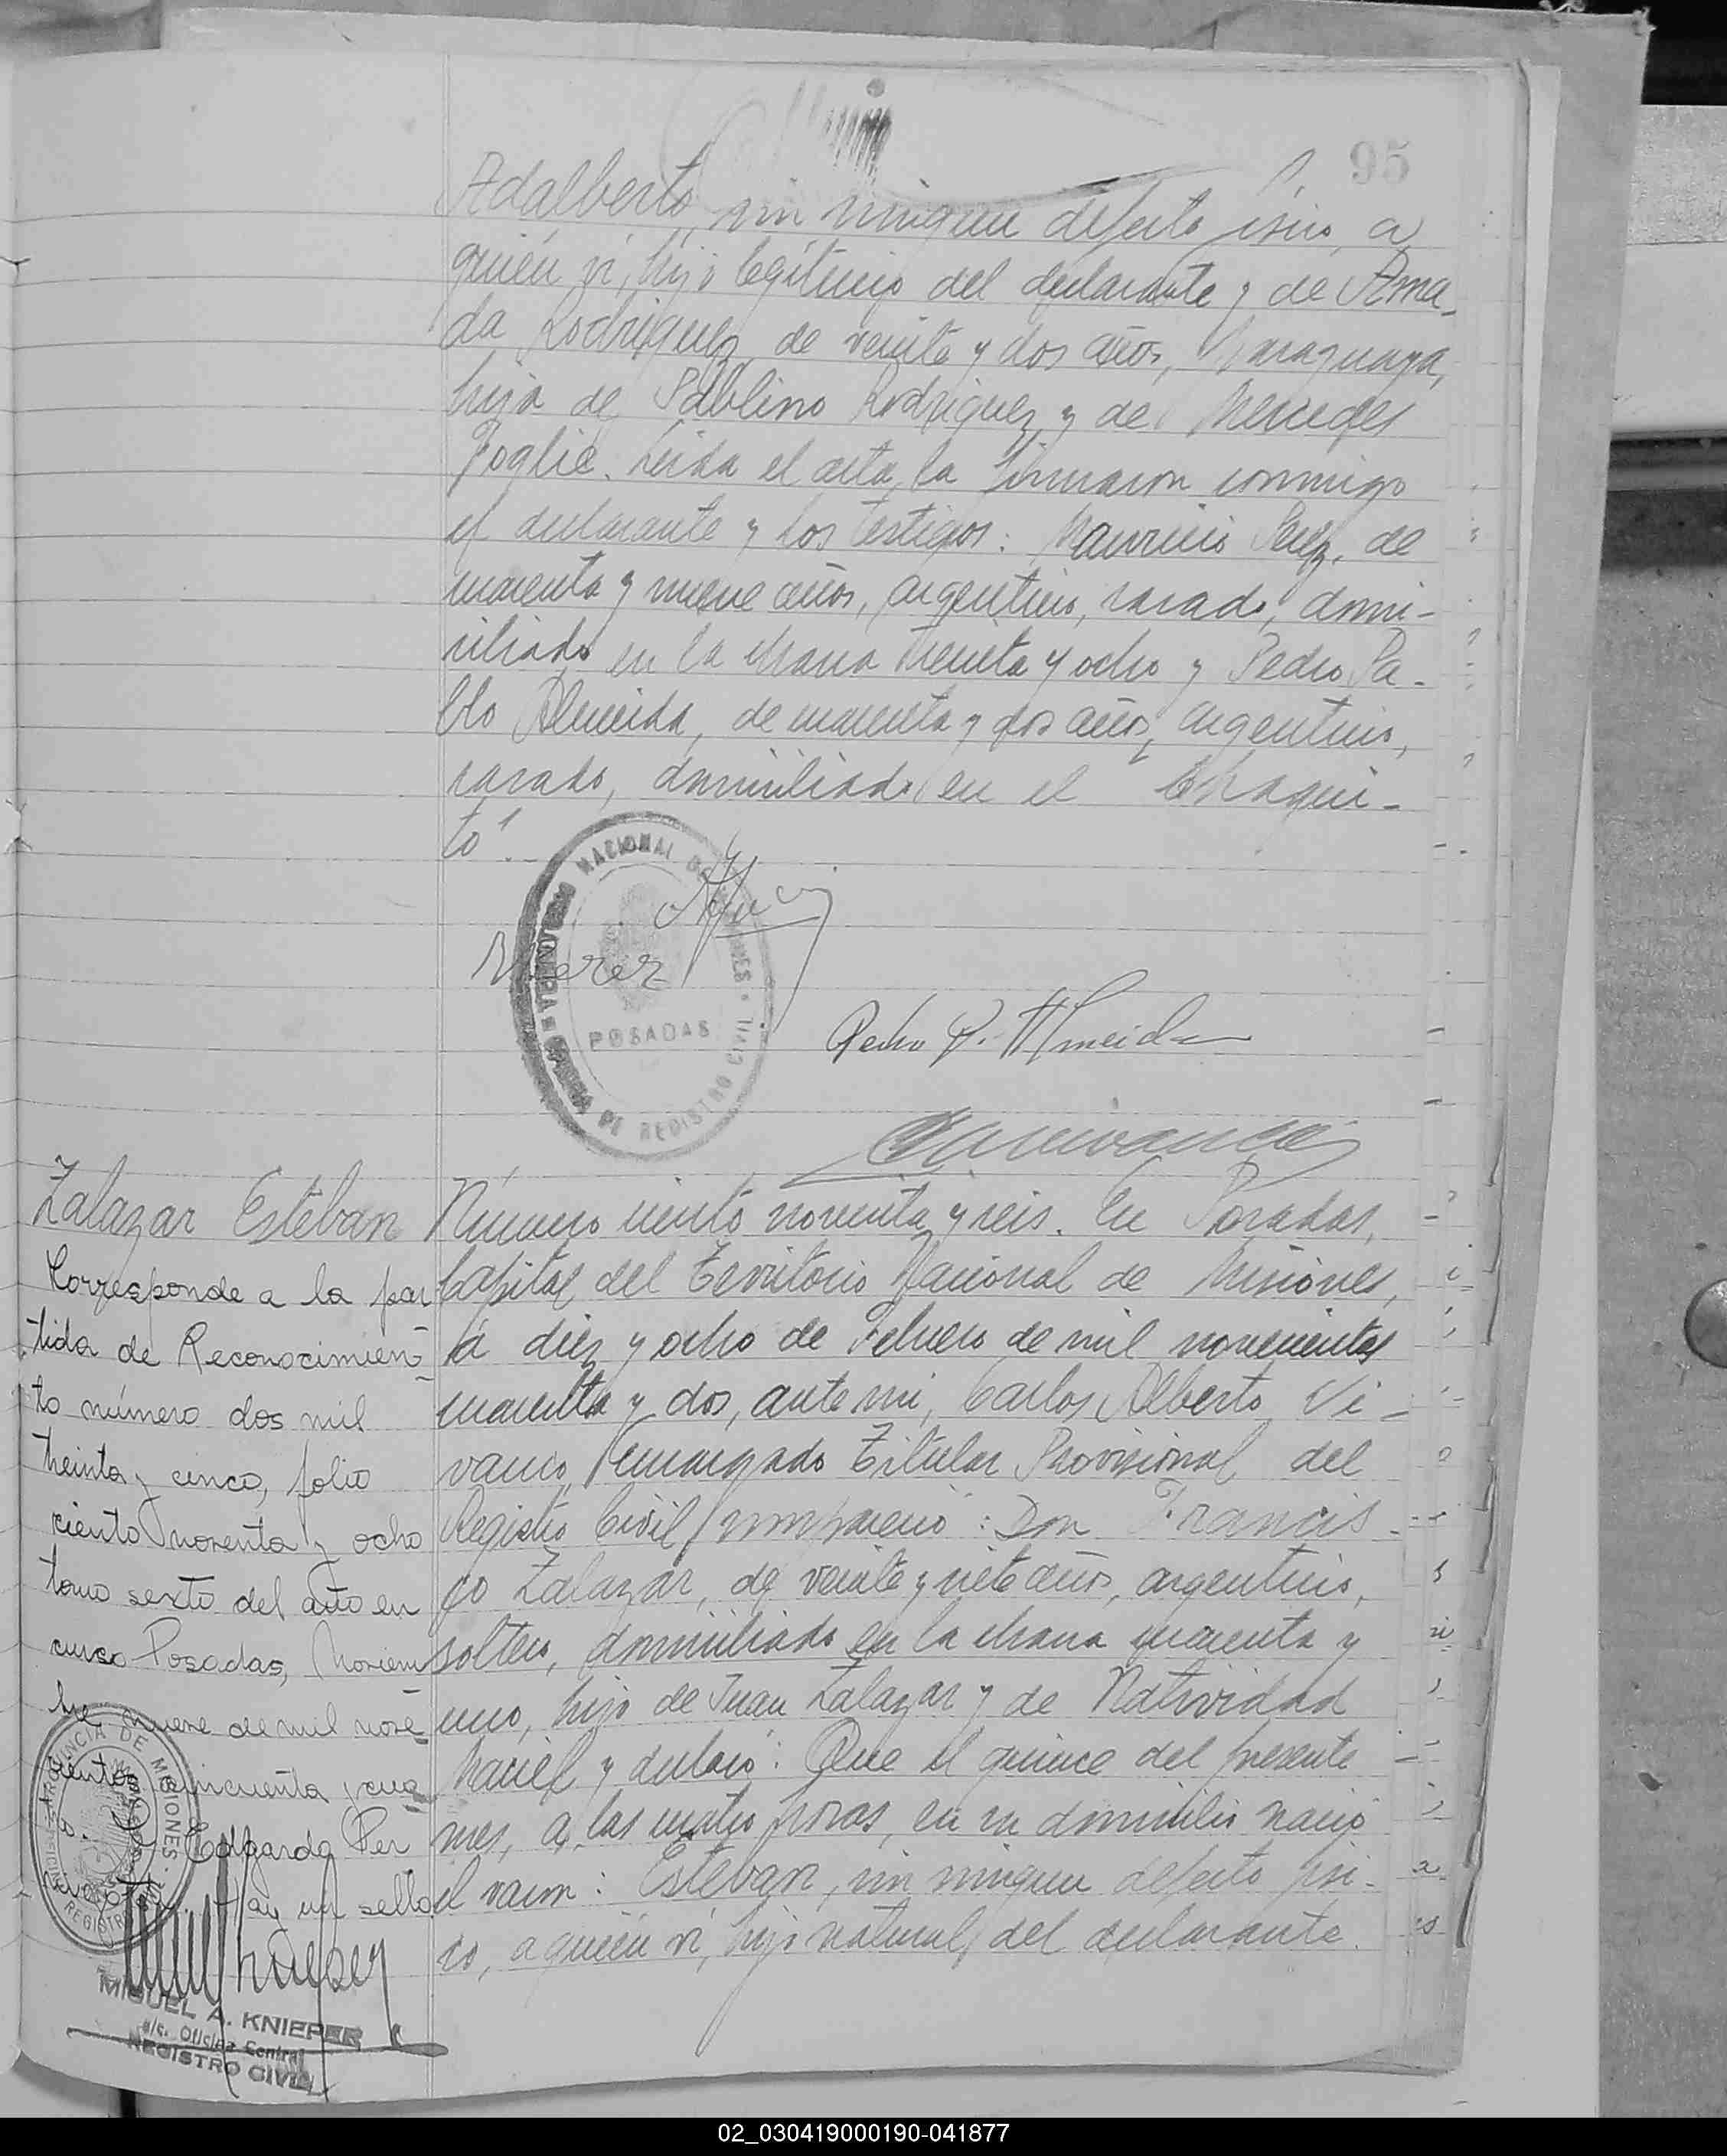 95
Adalberto, sin ningun defecto fisico, a
quién vi, hijo legítimo del declarante y de Ama-
da Rodriguez, de veinte y dos años, Paraguaya,
hija de Pablino Rodriguez y de Mercedes
Foglie. Leida el acta, la firmaron conmigo
el declarante y los testigos: Mauricio Perez, de
cuarenta y nueve años, argentino, casado, domi-
ciliado en la chacra treinta y ocho y Pedro Pa-
blo Almeida, de cuarenta y dos años, argentino,
casado, domiciliado en el "Chaqui-
to".
NACIONAL DE MISIONES
POSADAS
DE REGISTRO CIVIL
MPerez
Pedro P. Almeida
CAVivanco
Zalazar Esteban
Corresponde a la par-
tida de Reconocimien-
to número dos mil
treinta y cinco, folio
ciento noventa y ocho
tomo sexto del año en
curso Posadas, Noviem-
bre nueve de mil nove-
cientos cincuenta y cua-
Edgardo Per
Hay un sello
PROVINCIA DE MISIONES
REGISTRO
MIGUEL A. KNIEPER
a/c. Oficina Central
REGISTRO CIVIL
Número ciento noventa y seis. En Posadas,
Capital del Territorio Nacional de Misiones,
a diez y ocho de Febrero de mil novecientos
cuarenta y dos, ante mi, Carlos Alberto Vi-
vanco, Encargado Titular Provisional del
Registro Civil, compareció: Don Francis-
co Zalazar, de veinte y siete años, argentino,
soltero, domiciliado en la chacra cuarenta y
uno, hijo de Juan Zalazar y de Natividad
Maciel y declaró: Que el quince del presente
mes, a las cuatro horas, en su domicilio nació
el varon: Esteban, sin ningun defecto fisi-
co, a quién vi, hijo natural del declarante.
02_030419000190-041877